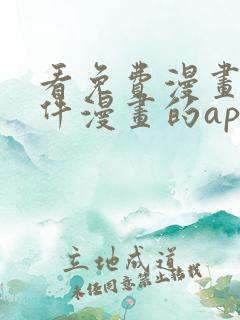 看免费漫畫
件漫畫的ap
立地成道
未经同意禁止转载